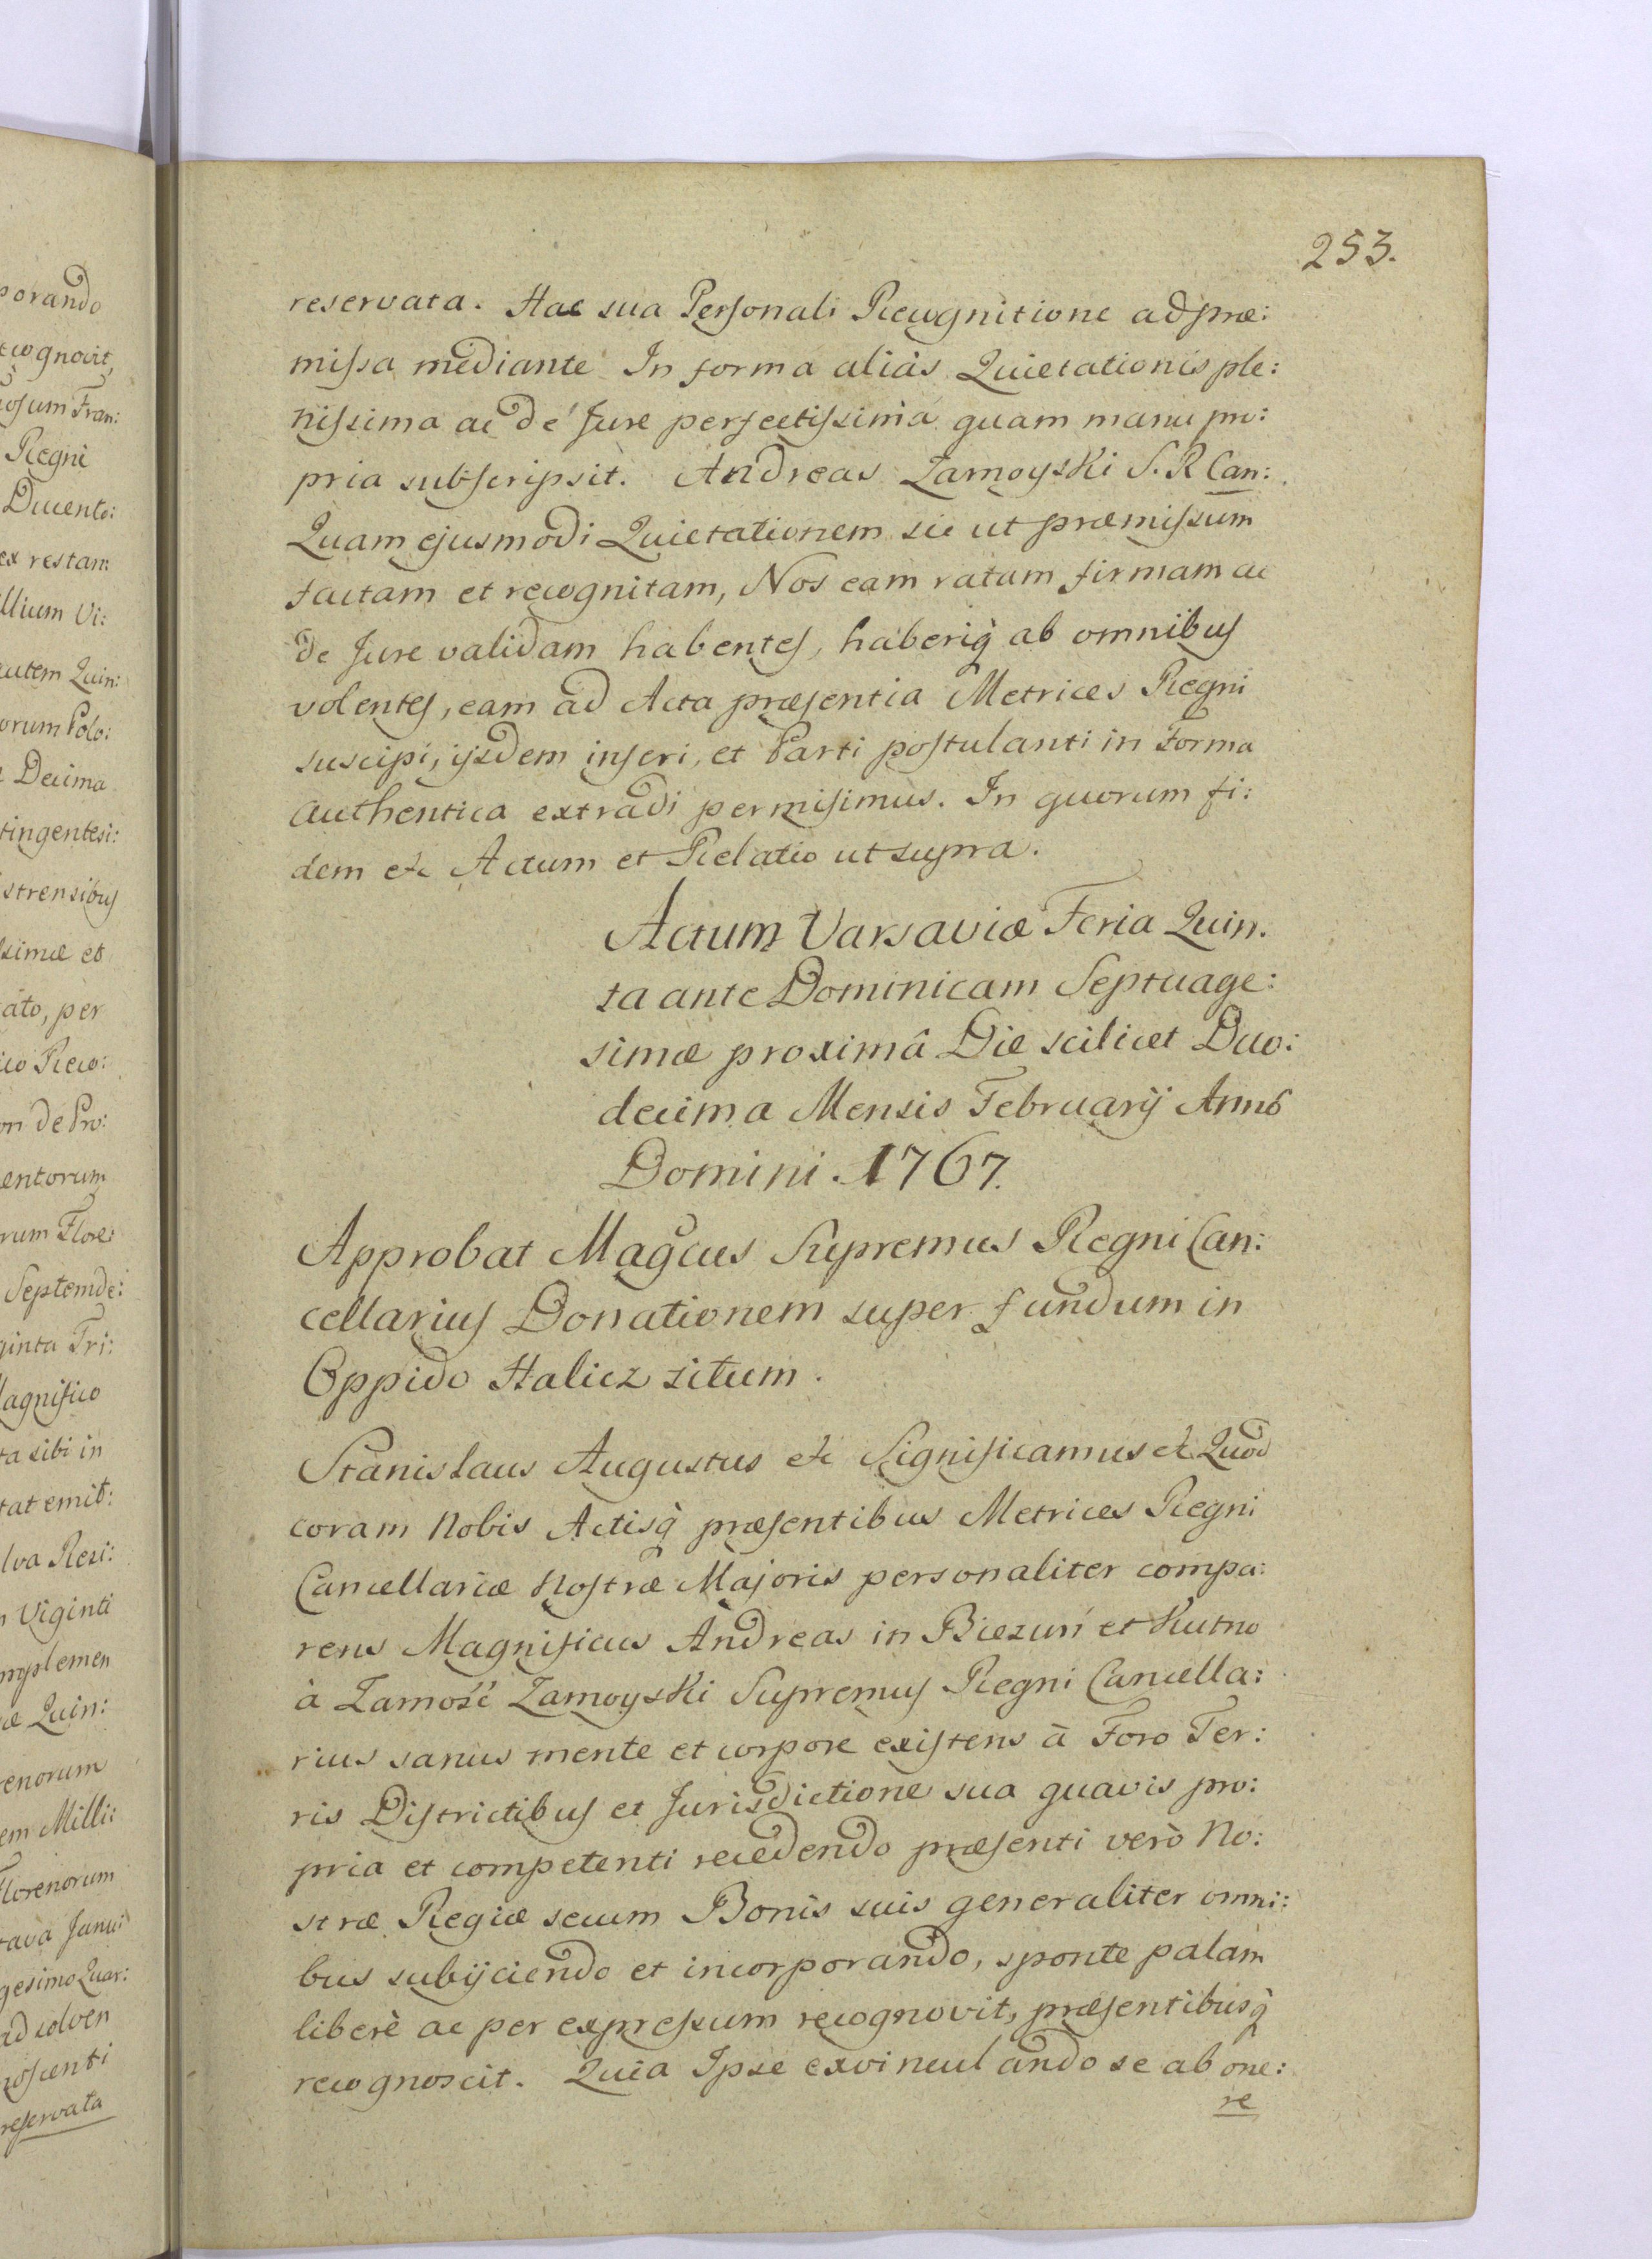 253.
reservata. Hac sua Personali Recognitione ad præ:
missa mediante In forma aliàs Quietationis ple:
nissima ac de Jure perfectissima quam manu pro:
pria subscripsit. Andreas Zamoyski S. R Can:
Quam ejusmodi Quietationem sic ut præmissum
factam et recognitam, Nos eam ratam firmam ac
de Jure validam habentes, haberiq̀ ab omnibus
volentes, eam ad Acta præsentia Metrices Regni
suscipi, ijsdem inseri, et Parti postulanti in Forma
authentica extradi permisimus. In quorum fi:
dem etc Actum et Relatio ut supra.
Actum Varsaviæ Feria Quin.
ta ante Dominicam Septuage:
simæ proximâ Die scilicet Duo:
decima Mensis Februarij Anno
Domini. 1767.
Approbat Mag̃cus Supremus Regni Can:
cellarius Donationem super fundum in
Oppido Halicz situm.
Stanislaus Augustus etc Significamus etc Quod
coram Nobis Actisq̀ præsentibus Metrices Regni
Cancellariæ Nostræ Majoris personaliter compa:
rens Magnificus Andreas in Biezuń et Kutno
à Zamość Zamoyski Supremus Regni Cancella:
rius sanus mente et corpore existens à Foro Ter:
ris Districtibus et Jurisdictione sua quavis pro:
pria et competenti recedendo præsenti verò No:
stræ Regiæ secum Bonis suis generaliter omni:
bus subijciendo et incorporando, sponte palam
liberè ac per expressum recognovit, præsentibusq̀
recognoscit. Quia Ipse exvinculando se ab one:
re
porando
ecognovit,
osum Fran:
Regni
Ducente:
ex restan:
llium Vi:
autem Quin:
orum Polo:
Decima
tingentesi:
strensibus
simæ et
ato, per
ico Reco:
on de Pro:
entorum
rum Flore:
Septemde:
ginta Tri:
Magnifico
ta sibi in
tat emit:
lva Resi:
n Viginti
mplemen
æ Quin:
renorum
em Milli:
Florenorum
tava Janu:
gesimo Quar:
ad solven
noscenti
reservata